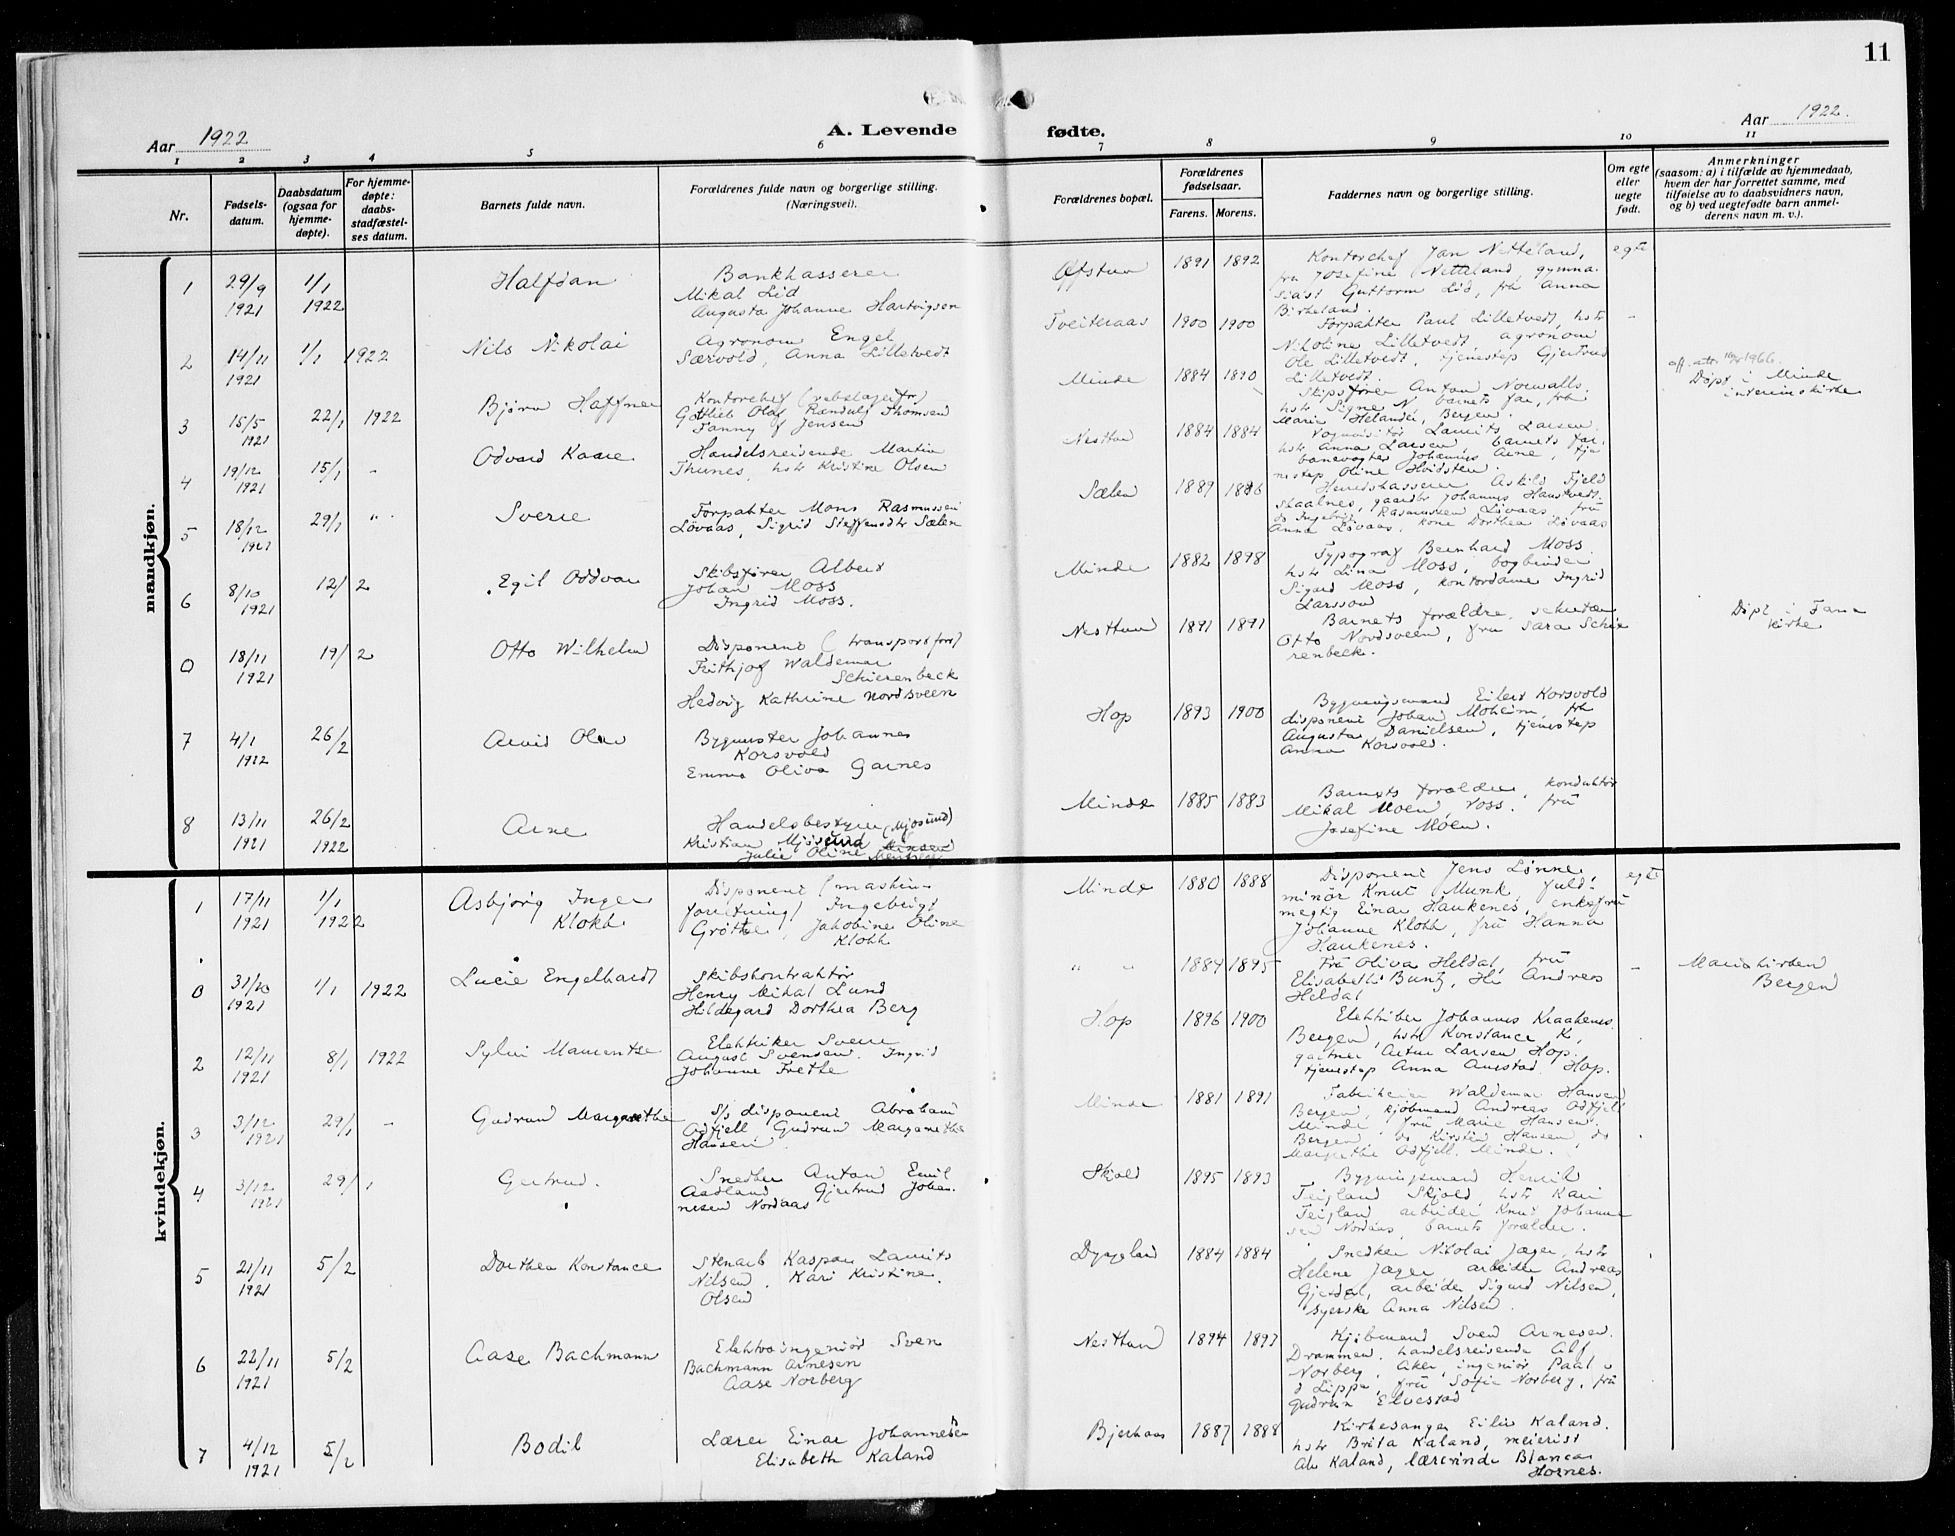 11
Aar 1922
A. Levende fødte.
Aar 1922.
1 2 3 4 5 6 7 8 9 10 11
Nr.
Fødsels-
datum.
Daabsdatum
(ogsaa for
hjemme-
døpte).
For hjemme-
døpte:
daabs-
stadfæstel-
ses datum.
Barnets fulde navn.
Forældrenes fulde navn og borgerlige stilling.
(Næringsvei).
Forældrenes bopæl.
Forældrenes
fødselsaar.
Farens. Morens.
Faddernes navn og borgerlige stilling.
Om egte
eller
uegte
født.
Anmerkninger
(saasom: a) i tilfælde av hjemmedaab,
hvem der har forrettet samme, med
tilføielse av to daabsvidners navn,
og b) ved uegtefødte barn anmel-
derens navn m. v.).
mandkjøn.
1 29/9 1921
1/1 1922
Halfdan
Bankkasserer
Mikal Lid
Augusta Johanne Hartvigsen
Øfsttun
1891 1892
Kontorchef Jan Netteland,
fru Josefine Netteland, gymna-
siast Guttorm Lid, frk Anna
Birkeland.
egte
2 14/11 1921
1/1 1922
Nils Nikolai
Agronom Engel
Særvold, Anna Lilletvedt
Tveiteraas
1900 1900
Forpakter Paul Lilletvedt, hstr
Nikoline Lilletvedt, agronom
Ole Lilletvedt, tjenestep Gjertrud
Lilletvedt.
-
3 15/5 1921
22/1 1922
Bjørn Haffner
Kontorchef (rebslagerfr)
Gottlieb Olaf Randulf Thomsen
Fanny f Jensen
Minde
1884 1890
Skipsfører Anton Norwalls
hstr Signe N barnets far, frk
Marie Helander, Bergen.
Døpt i Minde
interimskirke
4 19/12 1921
15/1 -
Odvard Kaare
Handelsreisende Martin
Thunes, hstr Kristine Olsen
Nesttun
1884 1884
Vognvisitør Laurits Larsen
hstr Anna Larsen barnets far,
banevogter Johannes Arne, tje
nestep Oline Hvidsten.
5 18/12 1921
29/1 " -
Sverre
Forpakter Mons Rasmussen
Løvaas, Sigrid Steffensdtr Sælen
Sælen
1889 1886
Herredskasserer Askild Fjeld
skaalnes, gaardbr Johannes Haustvedt
do Ingebrigt Rasmussen Løvaas, fru
Anna Løvaas, kone Dorthea Løvaas
6 8/10 1921
12/2
Egil Oddvar
Skibsfører Albert
Johan Moss
Ingrid Moss.
Minde
1882 1898
Typograf Bernhard Moss
hstr Lina Moss, bogbinder
Sigurd Moss, kontordame Ingrid
Larsson
0 18/11 1921
19/2
Otto Wilhelm
Disponent (transportforr)
Frithjof Waldemar
Schierenbeck
Hedvig Kathrine Nordsveen
Nesttun
1891 1891
Barnets forældre,
Otto Nordsveen, fru Sara Schie
renbeck.
Døpt i Fana
kirke
7 4/1 1922
26/2
Arvid Olav
Bygmester Johannes
Korsvold
Emma Oliva Garnes
Hop
1893 1900
Bygningsmand Eilert Korsvold
disponent Johan Moheim, frk
Augusta Danielsen, tjenestep
Anna Korsvold.
8 13/11 1921
26/2 1922
Arne
Handelsbestyrer (Mjøsund)
Kristian Mjøsund
Julie Oline
Minde
1885 1883
Barnets forældre, konduktør
Mikal Moen, Voss. fru
Josefine Moen.
kvindekjøn.
1 17/11 1921
1/1 1922
Asbjørg Inger
Klokk
Disponent (maskin-
forretning) Ingebrigt
Grøtte, Jakobine Oline
Klokk
Minde
1880 1888
Disponent Jens Lønne,
minør Knut Munk, fuld-
mægtig Einar Haukenes, enkefru
Johanne Klokk, fru Hanna
Haukenes.
egte
0 31/10 1921
1/1 1922
Lucie Engelhardt
Skibskontraktør
Henry Mikal Lund
Hildegard Dorthea Berg
" "
1884 1895
Fru Oliva Heldal, fru
Elisabeth Buntz, Hr Andreas
Heldal
-
Mariakirken
Bergen
2 12/11 1921
8/1 1922
Sylvi
Elektriker Sverre
August Svensen. Ingrid
Johanne Frette
Hop
1896 1900
Elektriker Johannes Kraakenes
Bergen, hstr Konstance K,
gartner Artur Larsen Hop.
tjenestep Anna Aurstad. Hop.
3 3/12 1921
29/1 -
Gudrun Margrethe
S/s disponent Abraham
Odfjell Gudrun Margarethe
Hansen
Minde
1881 1891
Fabrikeier Waldemar Hansen
Bergen, kjøbmand Andreas Odfjell
Minde fru Marie Hansen.
Bergen, do Kirsten Hansen, do
Margrethe Odfjell. Minde.
4 3/12 1921
29/1
Gertrud.
Snedker Anton Emil
Aadland Gjertrud Johan-
nesen Nordaas
Skjold
1895 1893
Bygningsmand Henrik
Teigland Skjold, hstr Kari
Teigland arbeider Knut Johanne
sen Nordaas, barnets forældre.
5 21/11 1921
5/2
Dorthea Konstance
Stenarb Kaspar Laurits
Nilsen. Kari Kristine.
Olsen
Dyngeland
1884 1884
Snedker Nikolai Jæger, hstr
Helene Jæger arbeider Andreas
Gjerdal, arbeider Sigurd Nilsen,
syerske Anna Nilsen.
6 22/11 1921
5/2
Aase Bachmann
Elektroingeniør Sven
Bachmann Arnesen
Aase Norberg
Nesttun
1894 1893
Kjøbmand Svend Arnesen.
Drammen. handelsreisende Alf
Norberg. Aker, ingeniør Paal v
d Lippe, fru Sofie Norberg, fru
Gudrun Elvestad
7 4/12 1921
5/2
Bodil
Lærer Einar Johannessen
Elisabeth Kaland
Bjerkaas
1887 1888
Kirkesanger Eiliv Kaland.
hstr Brita Kaland, meierist
Als Kaland, lærerinde Bianca
Hornes.